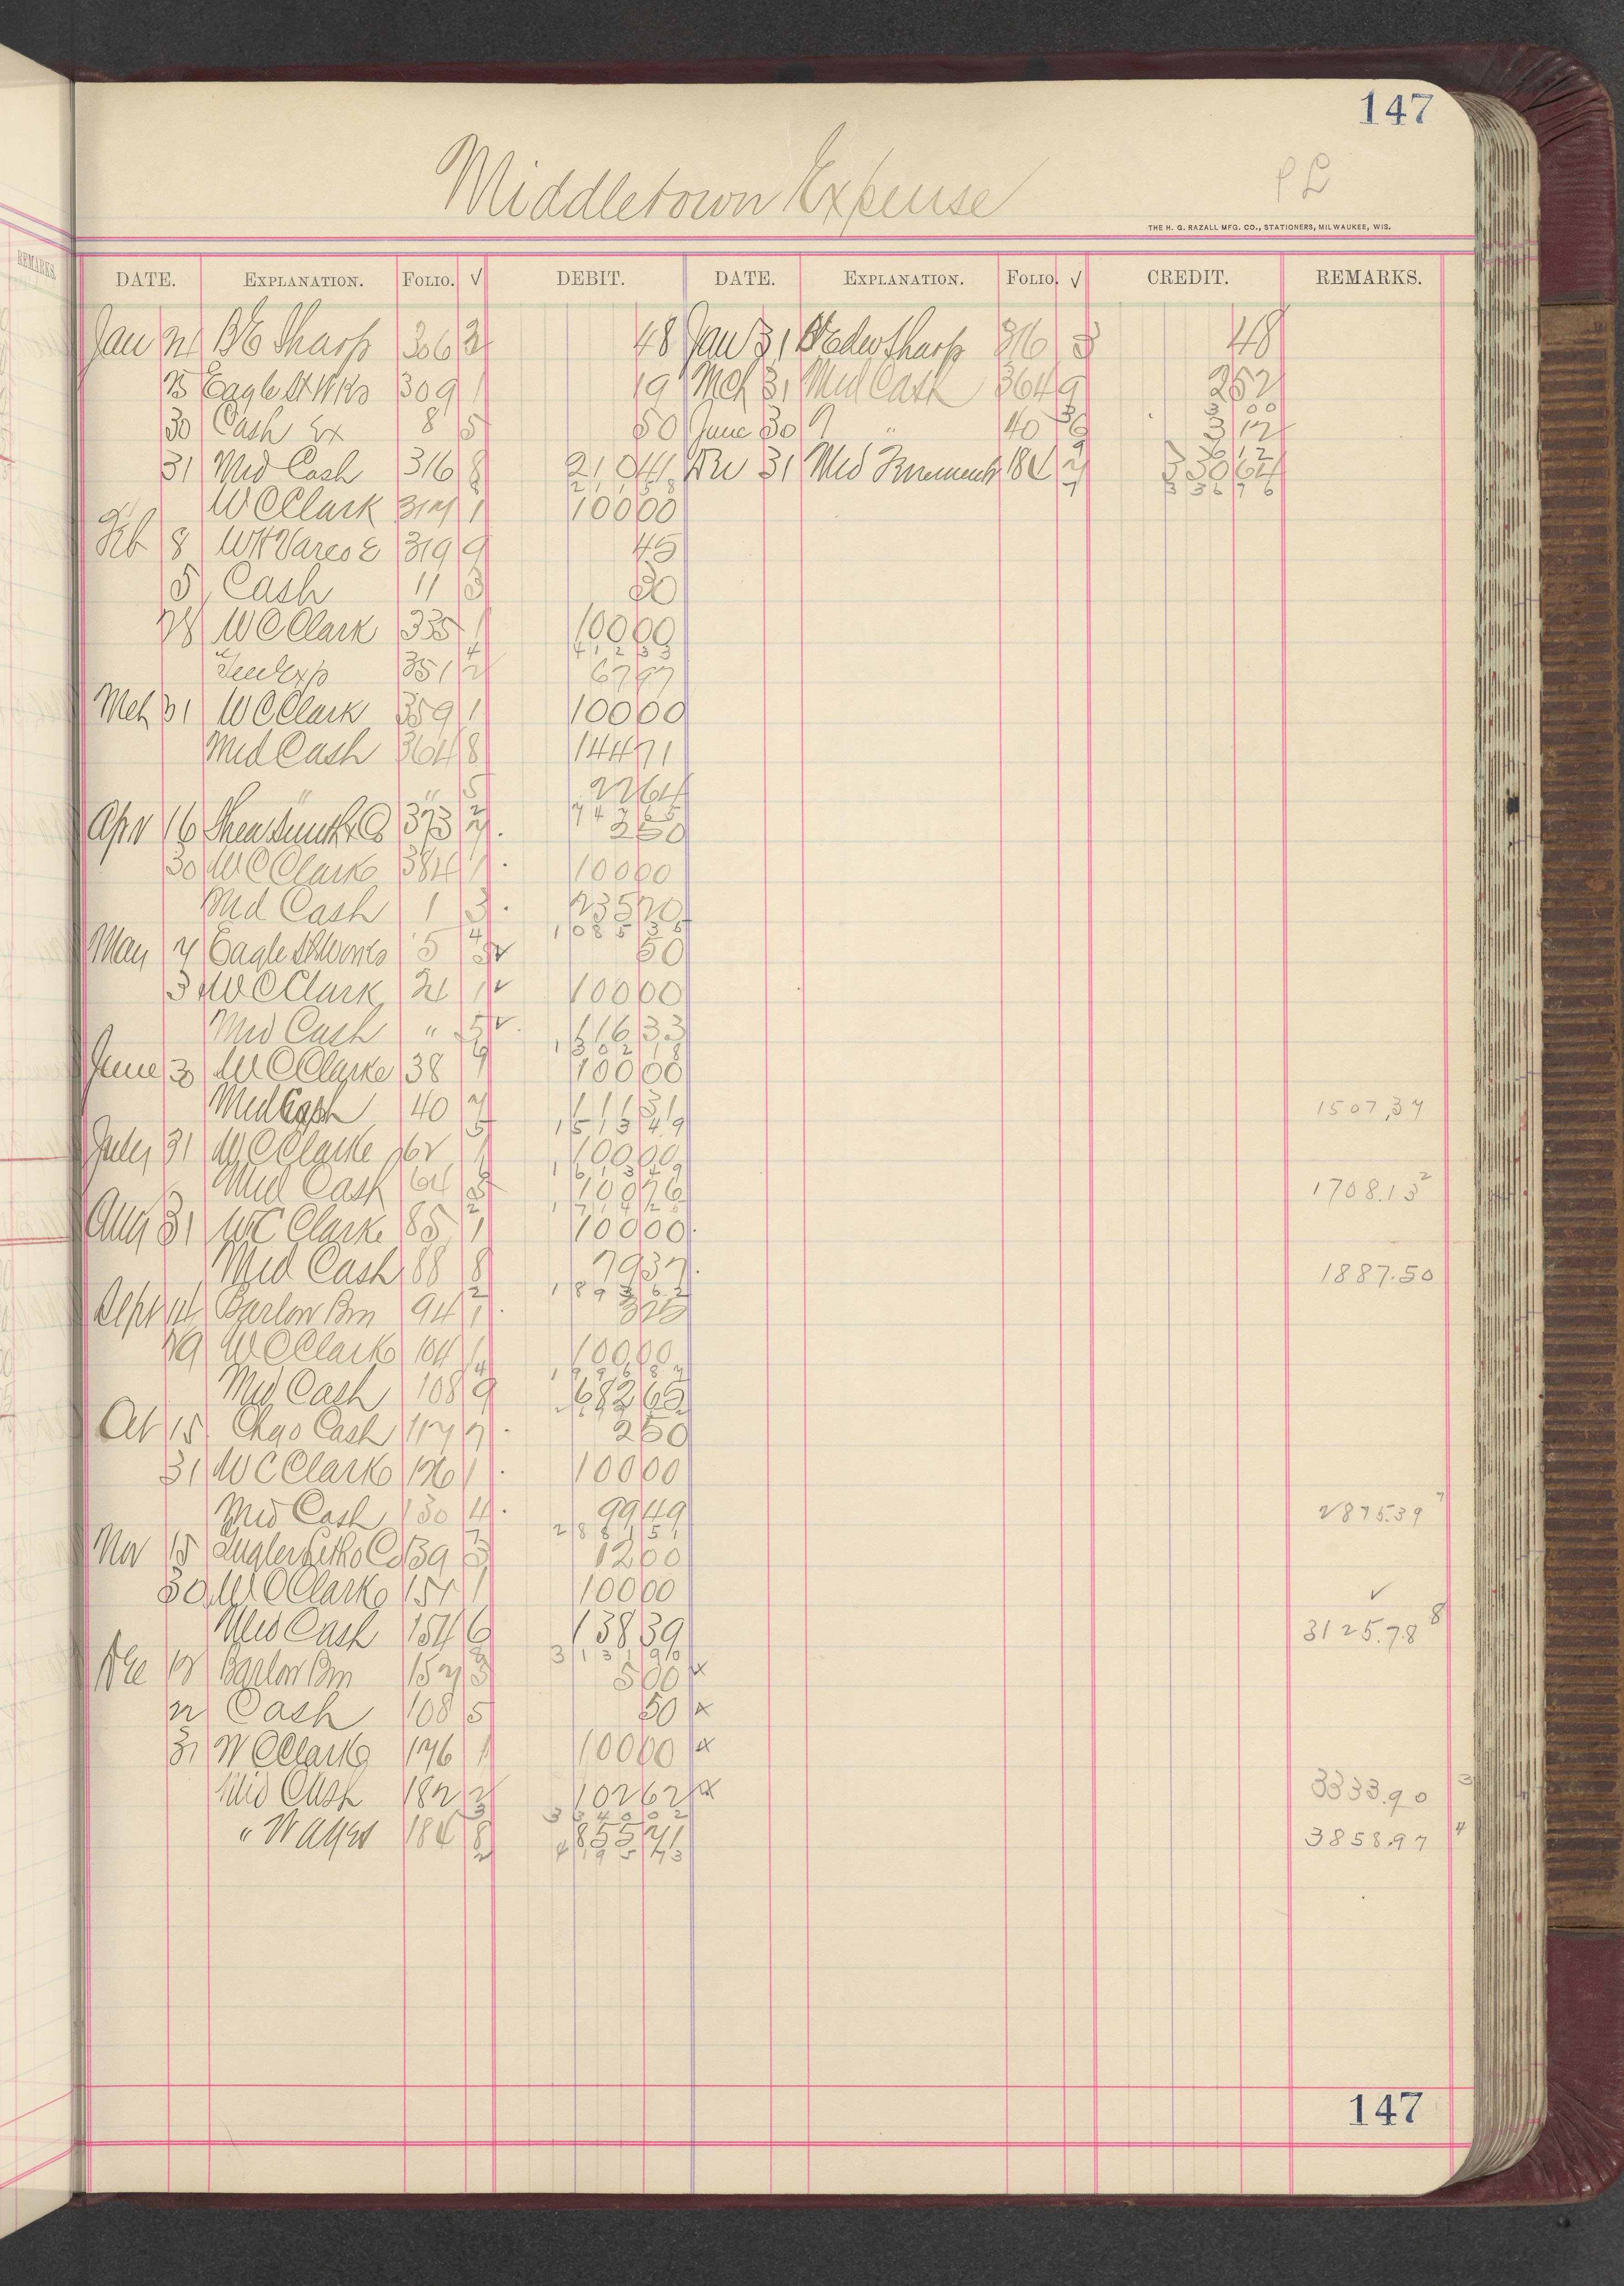 147
Middletown Expense
P L
THE H. G. RAZALL MFG. CO., STATIONERS, MILWAUKEE, WIS.
REMARKS.
DATE. EXPLANATION. FOLIO. √ DEBIT. DATE. EXPLANATION. FOLIO. √ CREDIT. REMARKS.
Jan Sharp 306 48 Jan 31 Sharp 316 3 48
15 Eagle 309 1 19 Mch 31 Med Cash 364 9 252
3 00
30 Cash Ex 8 5 50 June 30 " 40 3 12
31 Med Cash 316 8 210 41 31 Med 184 330 64
336 76
W C Clark 317 1 100 00
Feb 8 319 9 45
5 Cash 11 3 20
28 W C Clark 335 1 100 00
412 33
Exp 351 67 97
Mch 31 W C Clark 359 1 100 00
Med Cash 364 8 144 71
" " 5 22 64
747 65
Apr 16 373 2 50
30 W C Clark 384 1 100 00
Med Cash 1 3 235 20
1085 35
May 4 Eagle Works 5 50
31 W C Clark 21 1 √ 100 00
Med Cash " 5 √ 116 33
1302 18
June 30 W C Clarke 38 1 100 00
Med Cash 40 7 111 31 1507.37
1513 49
July 31 W C Clarke 62 1 100 00
1613 49
Med Cash 64 100 76 1708.13 2
1714 25
Aug 31 W C Clarke 85 1 100 00
Med Cash 88 8 79 37 1887.50
1893 62
Sept 14 Barlow Bros 94 1 3 25
29 W C Clark 104 1 100 00
1996 87
Med Cash 108 9 682 63
Oct 15 Chgo Cash 117 7 2 50
31 W C Clark 126 1 100 00
Med Cash 130 4 99 49 2875.39 7
2881 51
Nov 15 Litho Co 139 3 12 00
30 W C Clark 151 1 100 00 √
Med Cash 154 6 138 39 3125.78 8
3131 90
Dec Barlow Bros 157 3 5 00 x
Cash 108 5 50 x
31 W C Clark 176 1 100 00 x
Med Cash 182 2 102 62 x 3333.90 3
3340 02
" Wages 184 8 855 71 3858.97 4
4195 73
147